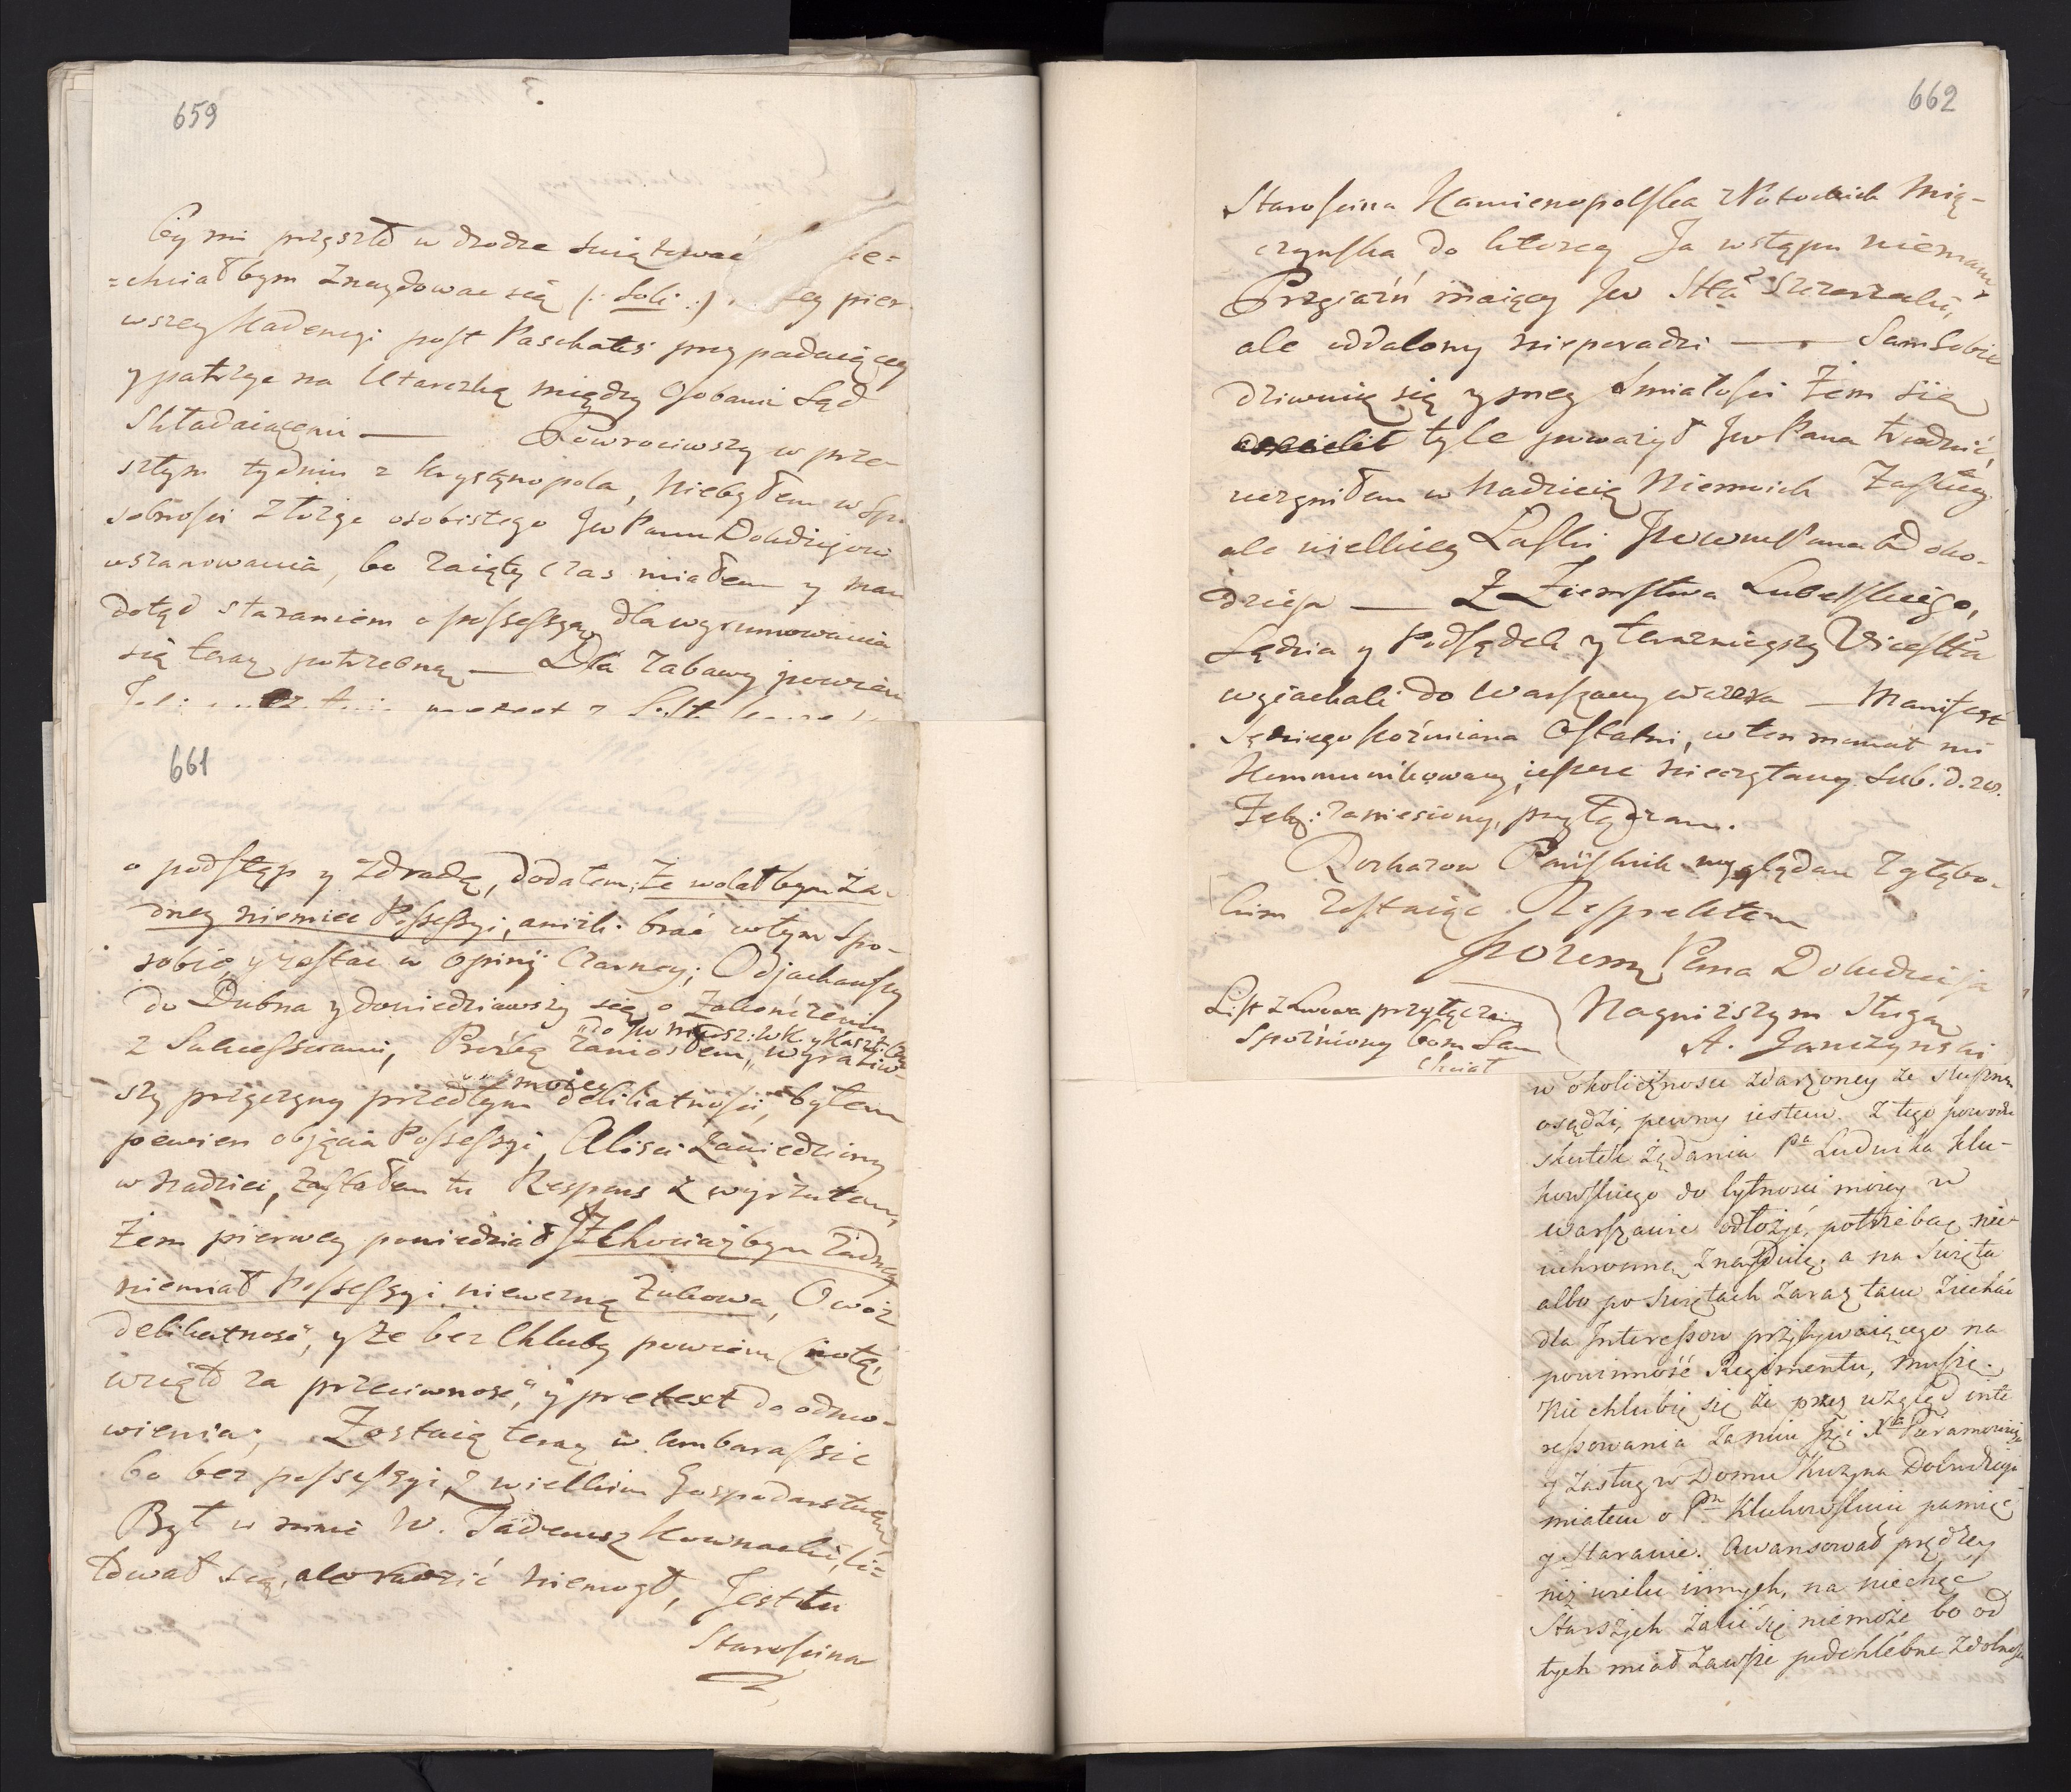 659
by mi przyszło w drodze swiątować
=chciałbym znaydować się (: Soli :) pier
wszey Kadencyi post Paschatis przypadaiącey
y patrzyć na Utarczką między Osobami Sąd
Składaiącemi — Powrociwszy w prze
szłym tygodniu z Krystynopola, niebyłem w Spo
sobności złożyć osobistego Jw Panu Dobudziejowi
uszanowania, bo zaięty czas miałem y mam
dotąd staraniem o possessyą dla wyrumowania
się teraz potrzebną — Dla zabawy powiem
661
o podstęp y zdradę, dodałem: że wolałbym ża-
dney niemieć Possessyi, aniżli brać w tym spo-
sobie y zostać w Opinij Czarney; Odjachawszy
do Dubna y dowiedziawszy się o Zakończeniu
z Sukcessorami, Proźbą zaniosłem, wyraziw-
szy przyczyny przedtym moiey delikatności, byłem
pewien objęcia Possessyi, Alisci zawiedziony
w nadziei, zastałem tu Respons z wyrzutem,
żem pierwey powiedział że Chociażbym żadney
niemiał Possessyi niewezmę Żukowa, Owoż
delikatność, y że bez Chluby powiem Cnotę,
wziął za przeciwność, y pretext do odmo-
wienia; Zostaię teraz w Embarassie
bo bez possessyi z wielkim Gospodarstwem
Był u mnie W. Tadeusz Kownacki, li-
tował się, ale radzić niemogł, Jest tu
Staroscina
662
Staroscina Kamienopolska z Potockich Mią-
czynska do ktorey Ja wstępu niemam
Przyiaźń maiący Jw Stta Szczerzecki,
ale oddalony nieporadzi — Sam Sobie
dziwuię się y mey smiałosci żem się
tyle poważył Jw Pana trudnić,
uczyniłem w Nadzieię Niemoich Zasług
ale wielkiey Łaski Jww Pana Dobo-
dzieja — Z Ziemstwa Lubelskiego,
Sędzia y Podsędek y teraznieyszy Vicesta
wyjachali do Warszawy wczora — Manifest
Sędziego Koźmiana Ostatni, w ten moment mi
Kommunikowany, ieszcze nieczytany Sub. d. 20.
Feby: zaniesiony, przyłączam.
Rozkazow Pańskich wyglądam z głębo-
kim zostaiąc Respektem
Jwo Pana Dobudzieja
Nayniższym Sługą
A. Janczynski
List z Lwowa przyłączam
Spoźniony bom Sam
chciał
w okoliczności zdarzoney że słuszną
osądzi, pewny iestem. Z tego powodu
skutek żądania Pa Ludwika Klu-
kowskiego do bytnosci moiey w
Warszawie odłożyć, potrzebę nie-
uchronną znayduię, a na Święta
albo po Świętach zaraz tam ziechać
dla Interessow przysywaiącego na
powinność Regimentu, muszę.
Nie chlubię się że przez wzgląd inte
ressowania za nim
y zasług w Domu Kuzyna Dobudzieja
miałem o Pn Klukowskim pamięć
y Staranie. Awansował prędzey
niż wielu innych, na niechęć
Starszych żalić się niemoże bo od
tych miał zawsze podchlebne